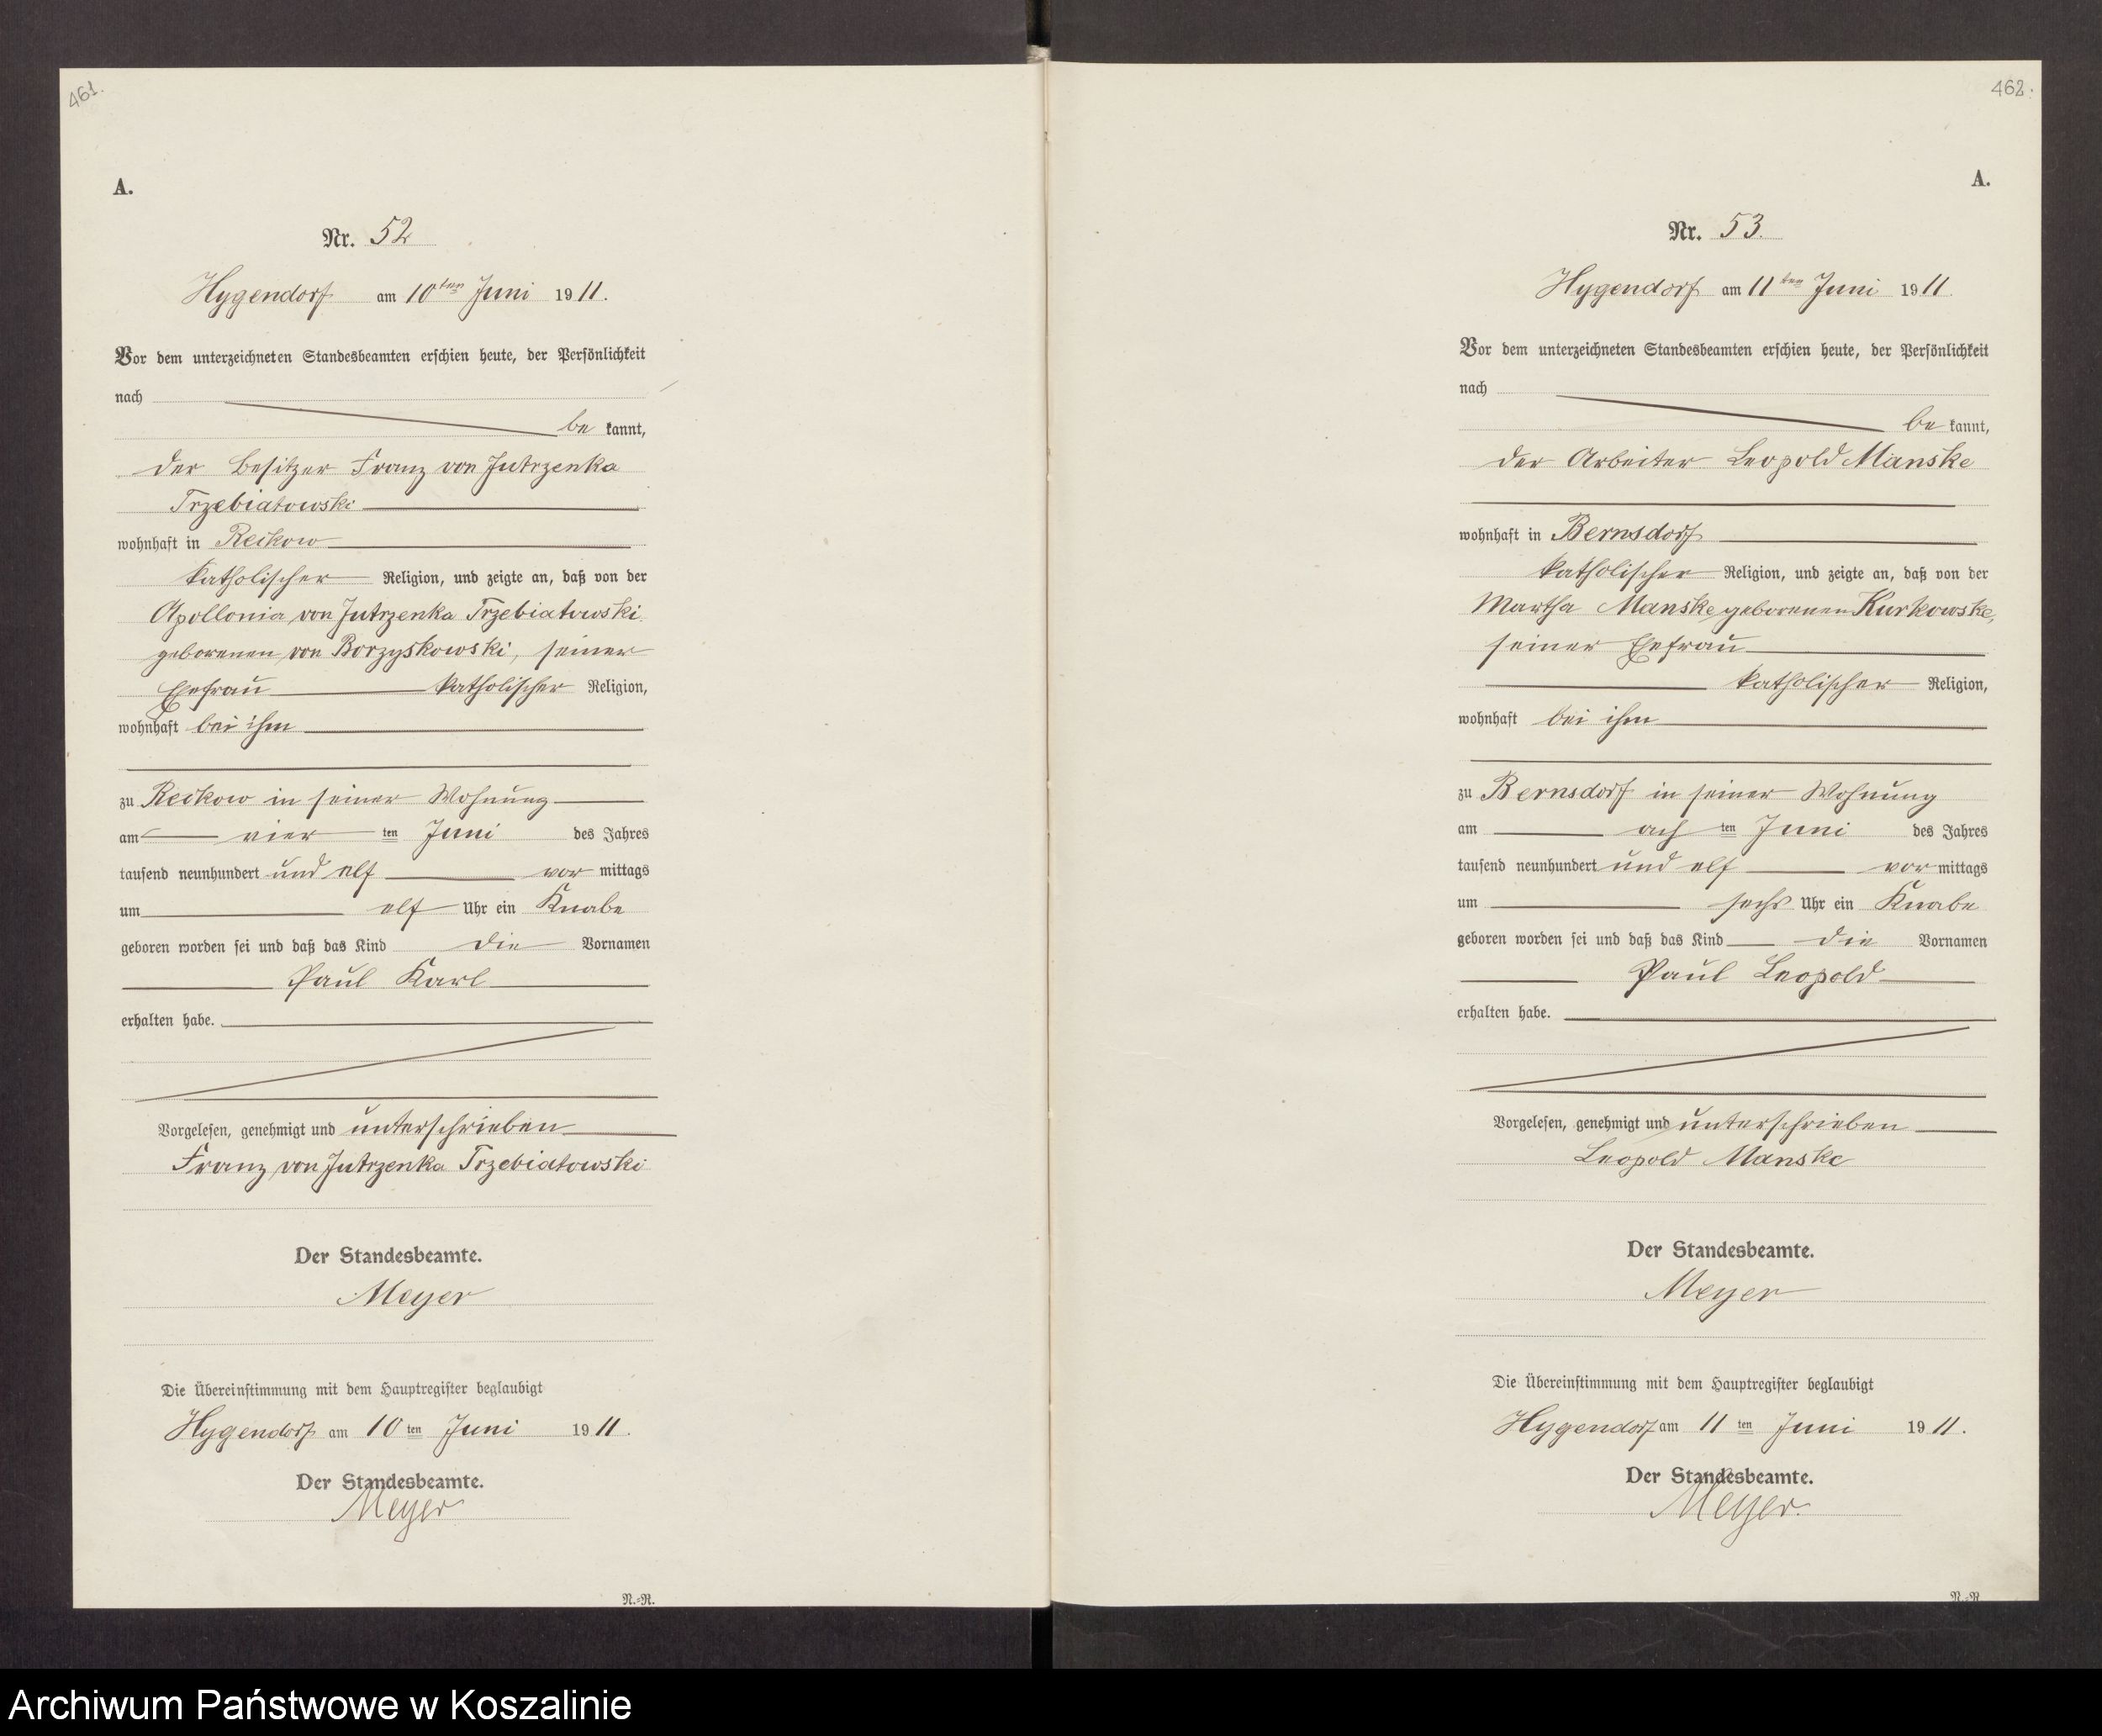 461.
A.
Nr. 52
Hygendorf am 10ten Juni 1911.
Vor dem unterzeichneten Standesbeamten erschien heute, der Persönlichkeit
nach
be kannt,
der Besitzer Franz von Jutrzenka
Trzebiatowski
wohnhaft in Reckow
katholischer Religion, und zeigte an, daß von der
Apollonia von Jutrzenka Trzebiatowski
geborenen von Borzyskowski, seiner
Ehefrau katholischer Religion,
wohnhaft bei ihm
zu Reckow in seiner Wohnung
am vier ten Juni des Jahres
tausend neunhundert und elf vor mittags
um elf Uhr ein Knabe
geboren worden sei und daß das Kind die Vornamen
Paul Karl
erhalten habe.
Vorgelesen, genehmigt und unterschrieben
Franz von Jutrzenka Trzebiatowski
Der Standesbeamte.
Meyer
Die Übereinstimmung mit dem Hauptregister beglaubigt
Hygendorf am 10 ten Juni 1911.
Der Standesbeamte.
Meyer
N.-R.
462.
A.
Nr. 53.
Hygendorf am 11ten Juni 1911.
Vor dem unterzeichneten Standesbeamten erschien heute, der Persönlichkeit
nach
be kannt,
der Arbeiter Leopold Manske
wohnhaft in Bernsdorf
katholischer Religion, und zeigte an, daß von der
Martha Manske geborenen Kurkowske,
seiner Ehefrau
katholischer Religion,
wohnhaft bei ihm
zu Bernsdorf in seiner Wohnung
am ach ten Juni des Jahres
tausend neunhundert und elf vor mittags
um sechs Uhr ein Knabe
geboren worden sei und daß das Kind die Vornamen
Paul Leopold
erhalten habe.
Vorgelesen, genehmigt und unterschrieben
Leopold Manske
Der Standesbeamte.
Meyer
Die Übereinstimmung mit dem Hauptregister beglaubigt
Hygendorf am 11 ten Juni 1911.
Der Standesbeamte.
Meyer.
N.-R.
Archiwum Państwowe w Koszalinie